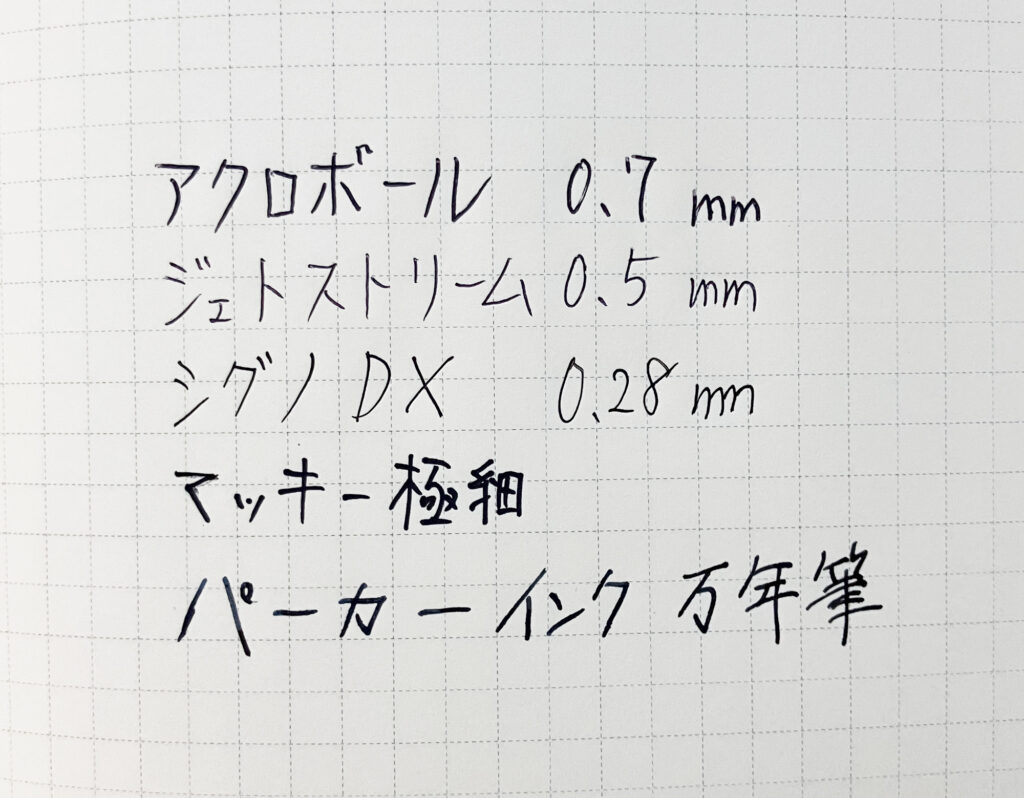 アクロボール 0.7 mm
ジェトストリーム 0.5 mm
シグノ DX 0.28 mm
マッキー極細
パーカーインク 万年筆